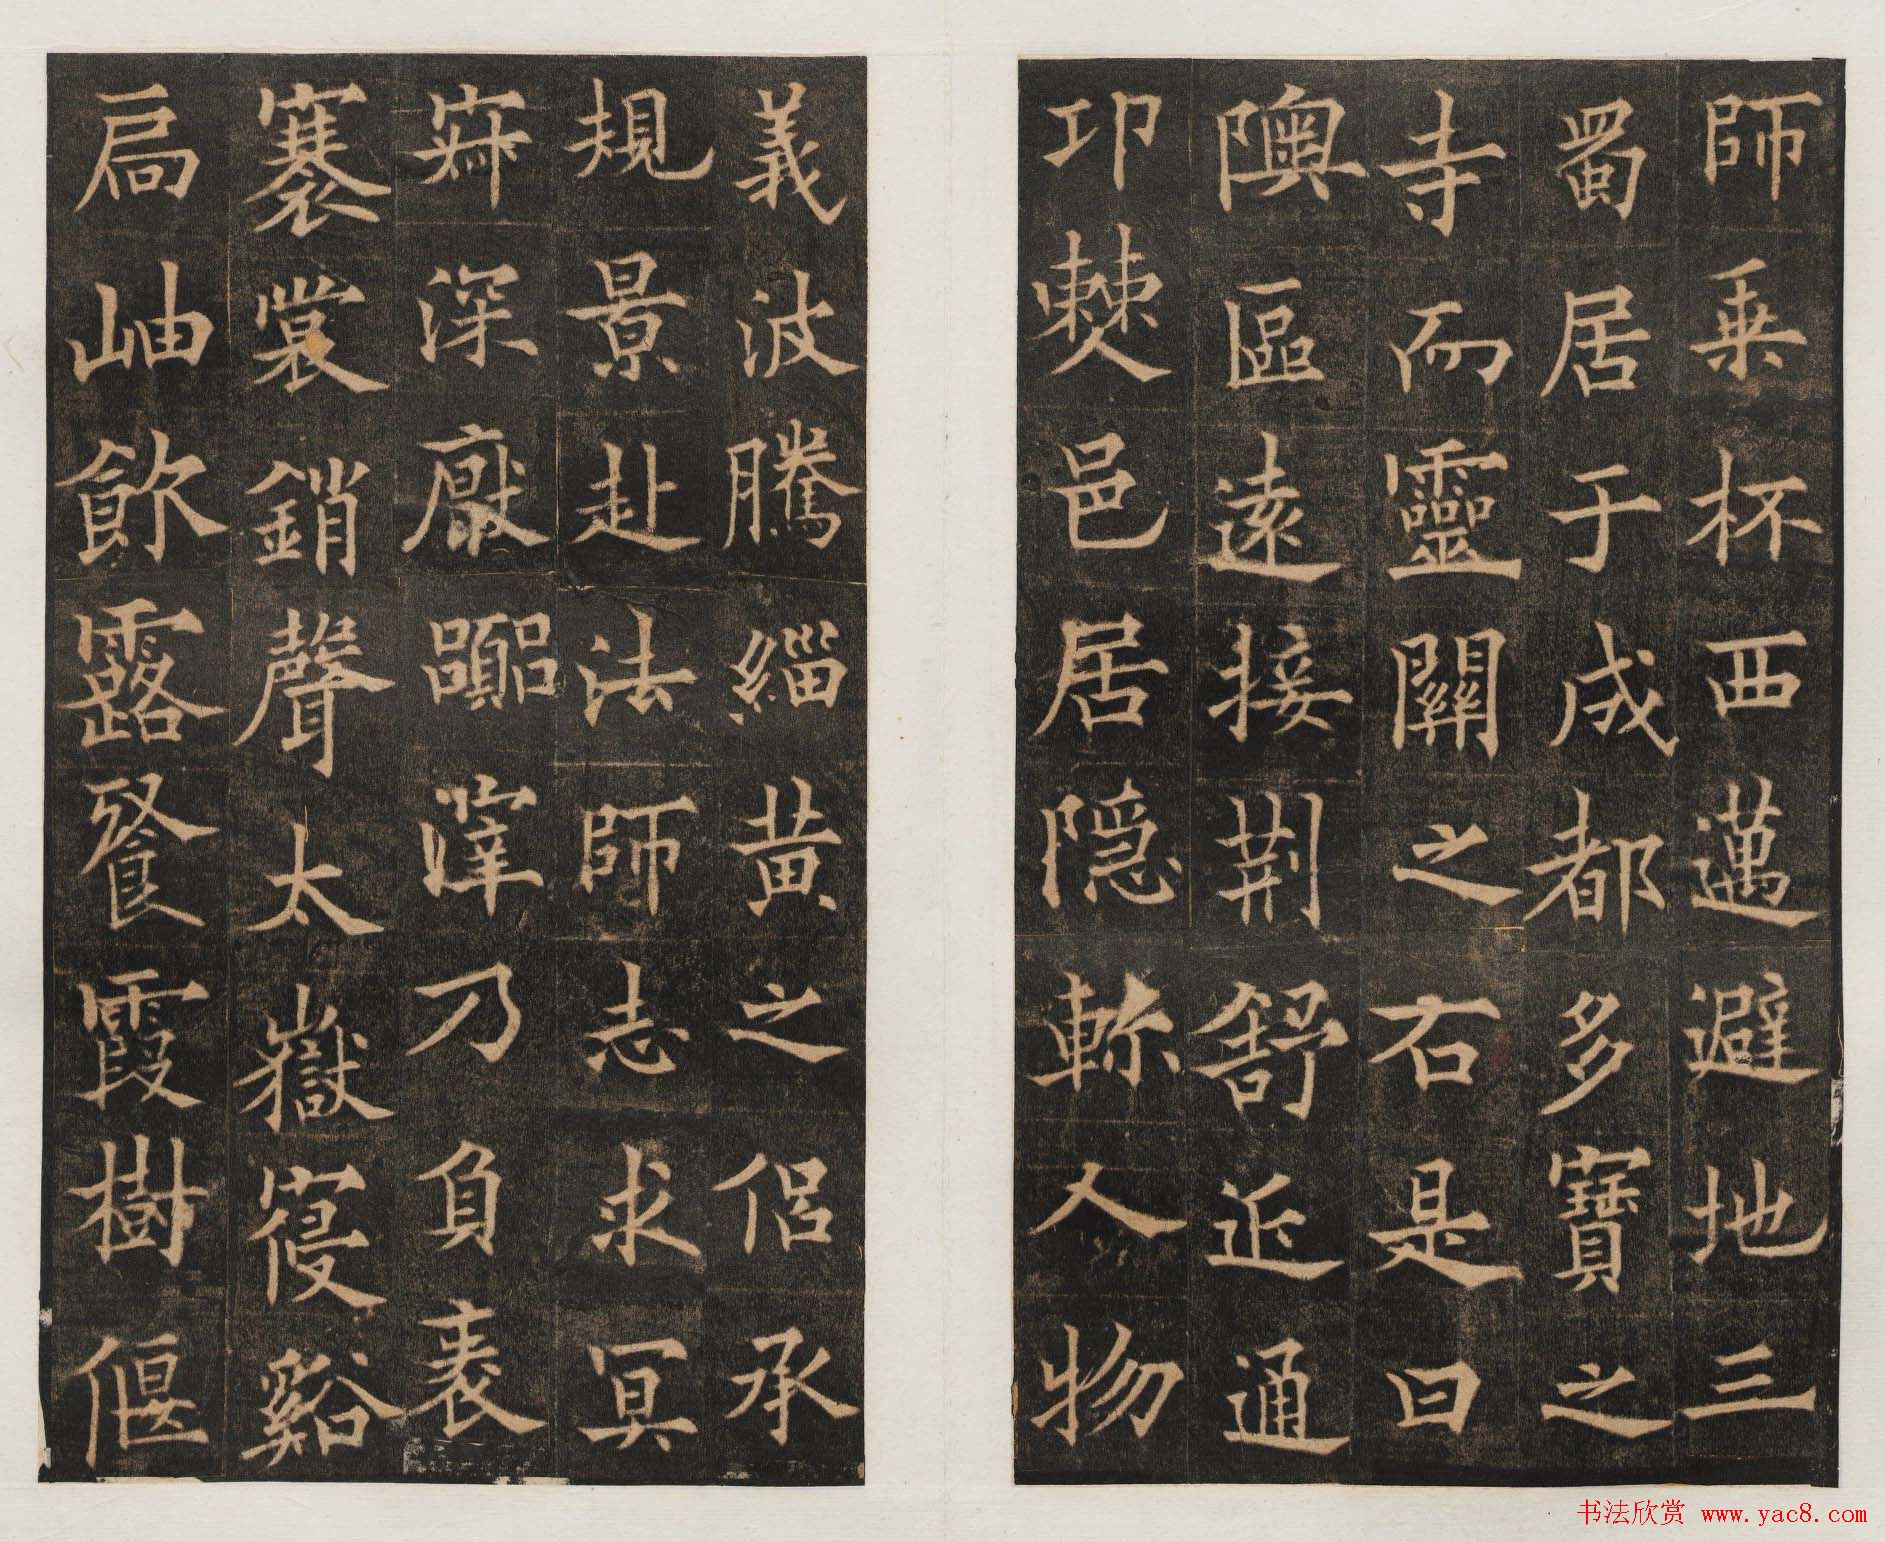 師乗杯西邁避地三
蜀居于成都多寶之
寺而靈關之右是曰
隩區遠接荆舒近通
邛僰邑居隠軫人物
義波騰緇黄之侶承
規景赴法師志求冥
寂深厭囂滓乃負袠
褰裳銷聲太嶽寑谿
扃岫飲露飡霞樹偃
书法欣赏 www.yac8.com